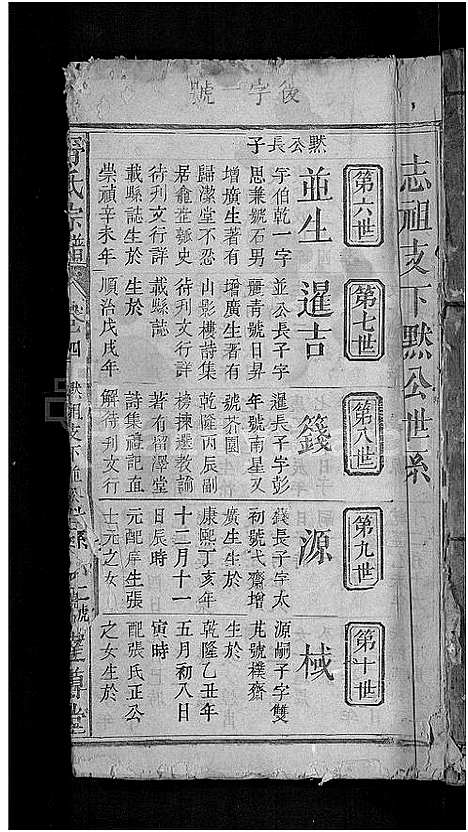 後字一號
志祖支下默公世系
默公長子
第六世
並生
字伯乾一字
思兼號石男
增廣生著有
歸潔堂不忍
居龕壺瓠史
待刋文行詳
載縣誌生於
崇禎辛未年
第七世
暹吉
並公長子字
麗青號日昇
增廣生著有
山影樓詩集
待刋文行詳
載縣誌
生於
順治戊戌年
第八世
籛
暹長子字彭
年號南星又
號芥園
乾隆丙辰副
榜揀選教諭
著有留澤堂
詩集禮記直
解待刋文行
第九世
源
籛長子字太
初號弋齋增
廣生生於
康熙丁亥年
十二月十一
日辰時
元配庠生張
士元之女
第十世
棫
源嗣子字雙
芃號樸齋
生於
乾隆乙丑年
五月初八日
寅時
配張氏正公
之女生於
氏宗譜 卷四 默祖支下